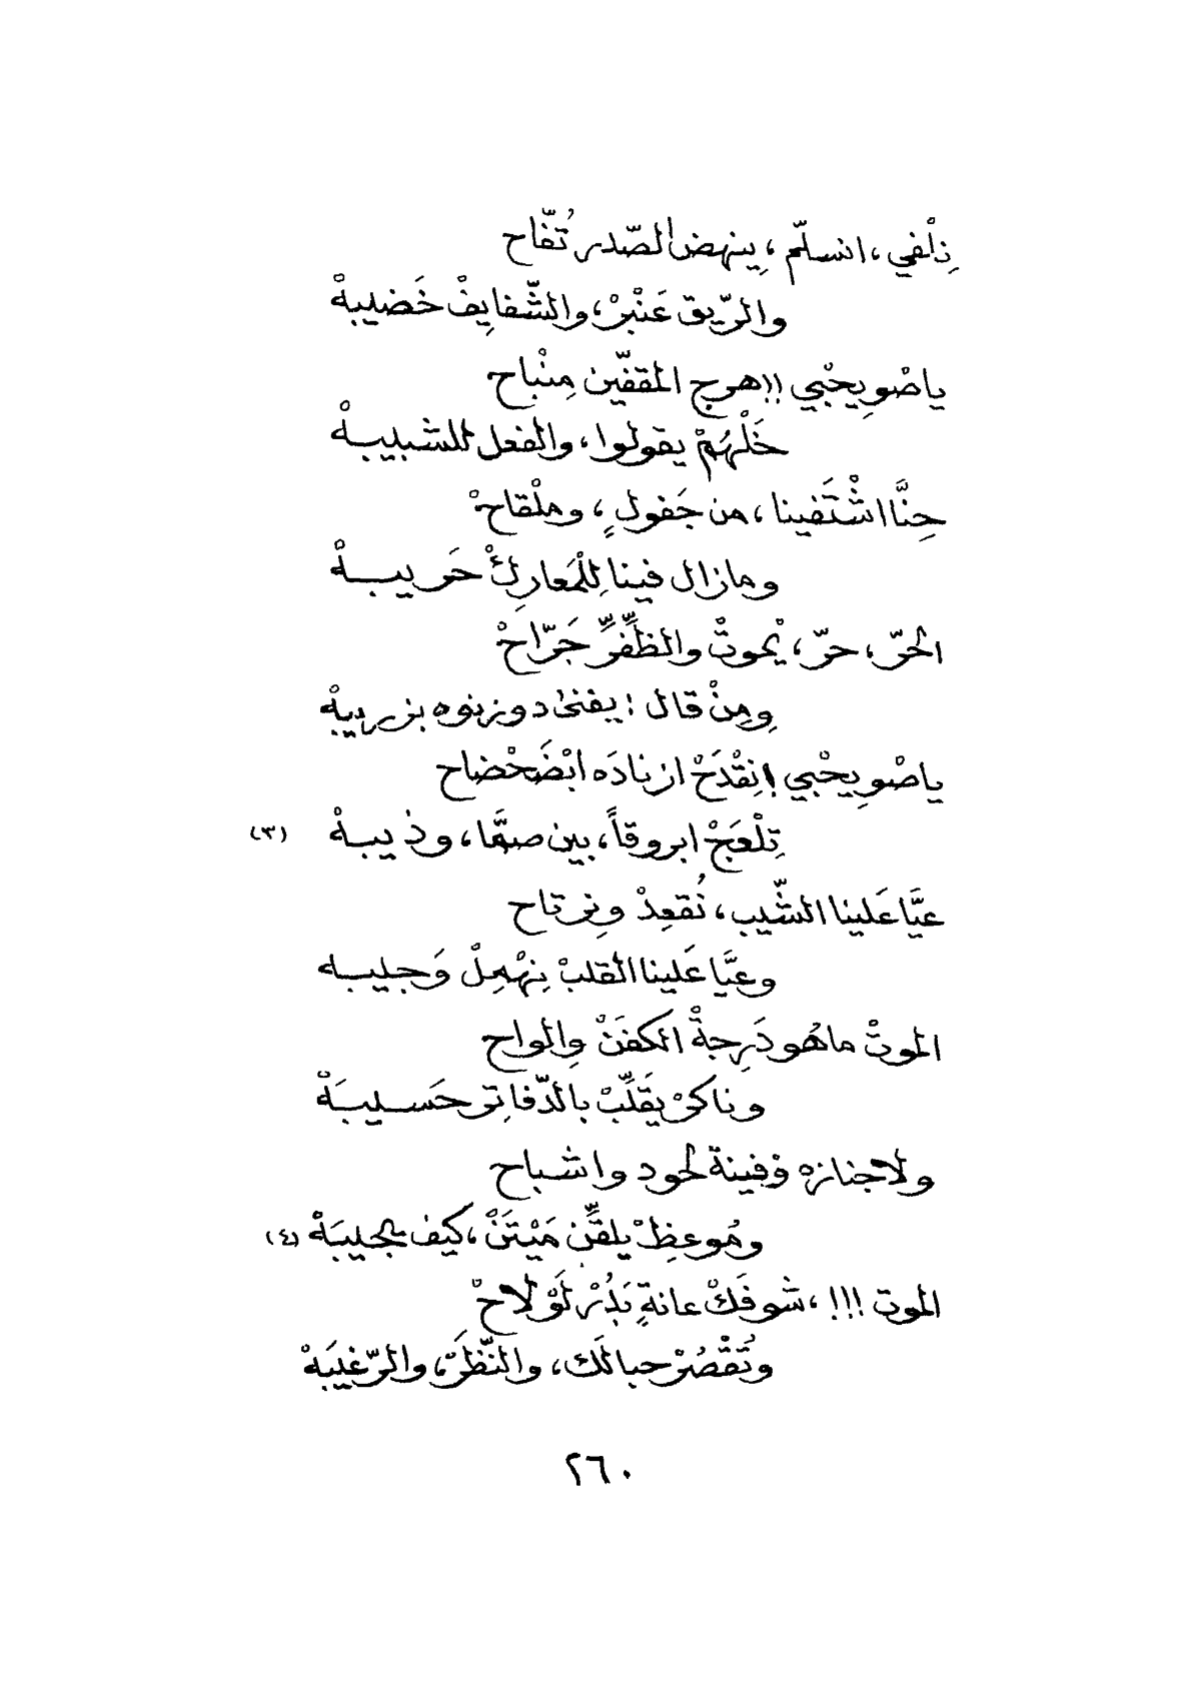 ذِلْفي، انسلّم، يِنهض الصّدر تُفّاح
والرّيق عَنْبرْ، والشّفايِفْ خَضيبهْ
ياصْويحْبي !! هرج المقفّين مِنْباح
خَلْهُمْ يقولوا، والفعل للشبيبهْ
حِنَّا اشْتَفينا، من جَفولٍ، وملْقاحْ
ومازال فينا لِلْمَعارِكْ حَريبهْ
الحرّ، حرّ، يْموتْ والظِّفرّ جَرّاحْ
ومِنْ قال : يفنىٰ دوزنوه بزريبهْ
ياصْويحْبي ! نِقْدَحْ ازنادَه ابْضَحْضاح
تِلْعَجْ ابروقاً، بين صمَّا، وذيبهْ (٣)
عيَّا عَلينا الشّيب، نُقعِدْ ونِرتاح
وعيَّا عَلينا القلبْ نِهْمِلْ وَجيبه
الموتْ ماهُو دَرجةْ الكفَنْ والواح
وناكرْ يقَلِّبْ بالدّفاتِر حَسيبَهْ
ولا جنازه وْفينة لحود واشباح
ومُوعظِ يلقِّن مَيْتَنْ، كيف بجيبَهْ (٤)
الموت !!!، شوفَكْ عانةٍ بَدْر لَوْلاحْ
وتُقْصُرْ حبالَك، والنّظَرْ، والرّغيبَهْ
٢٦٠